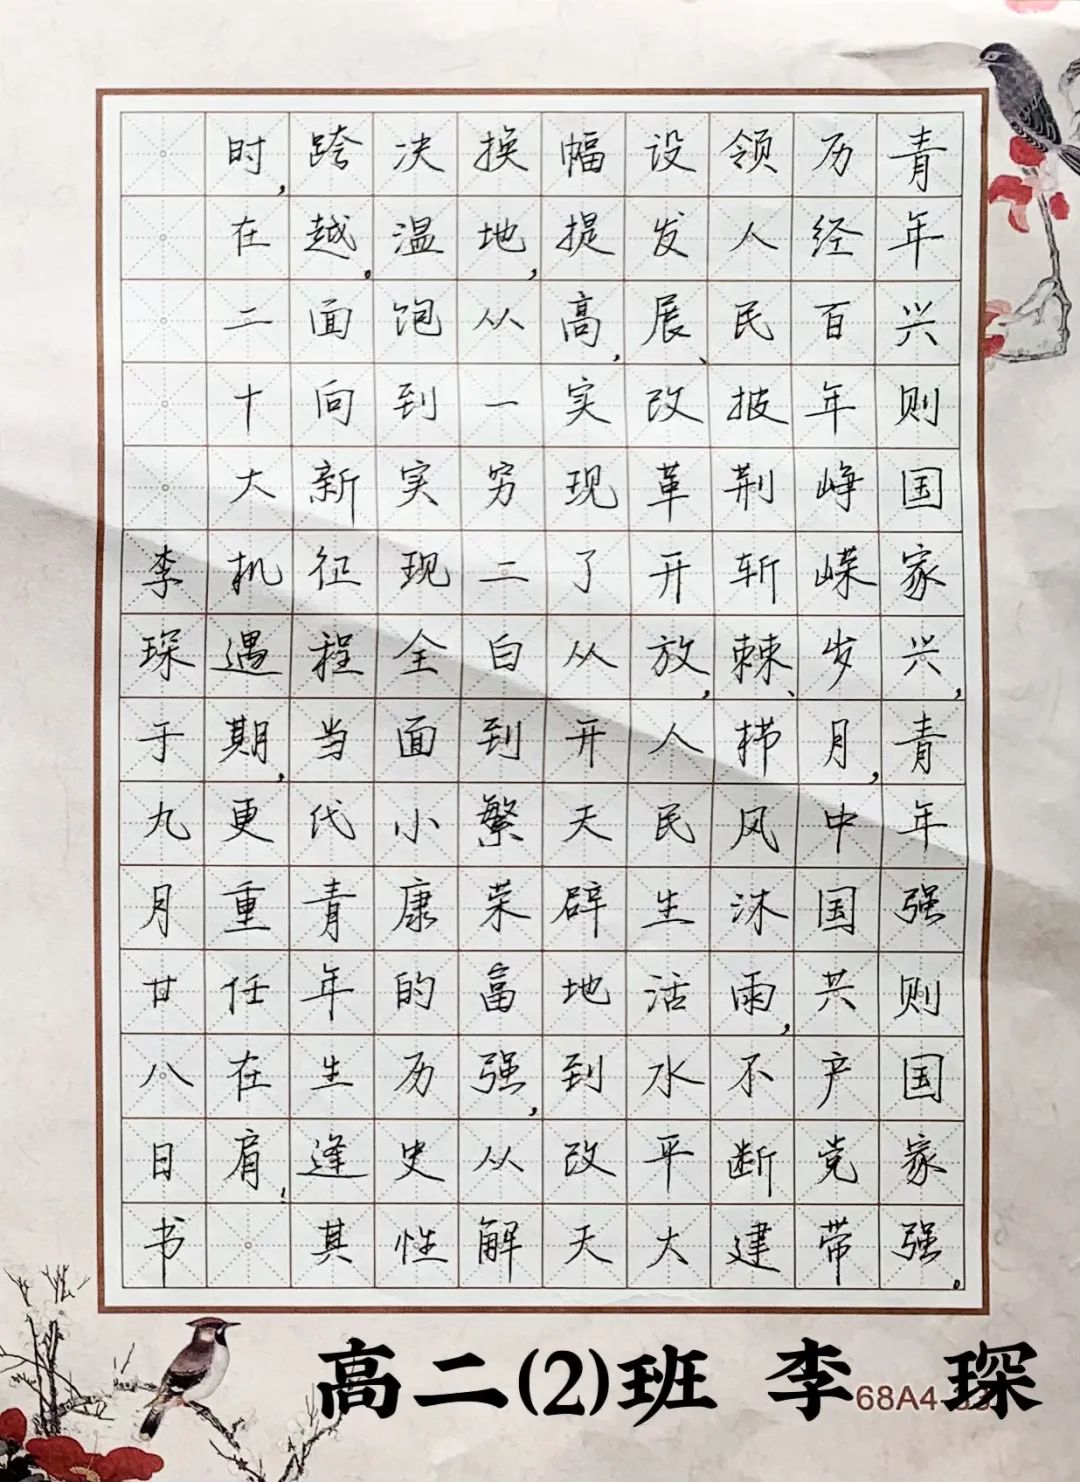 青年兴则国家兴，青年强则国家强。
历经百年峥嵘岁月，中国共产党带
领人民披荆斩棘、栉风沐雨，不断建
设发展、改革开放，人民生活水平大
幅提高，实现了从开天辟地到改天
换地，从一穷二白到繁荣富强，从解
决温饱到实现全面小康的历史性
跨越。面向新征程当代青年生逢其
时，在二十大机遇期，更重任在肩！
李琛于九月廿八日书
高二(2)班 李 琛